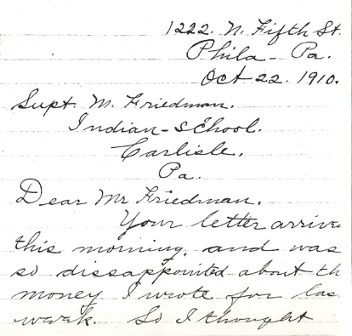 1222. N. Fifth St.
Phila - Pa.
Oct 22. 1910.
Supt. M. Friedman.
Indian-School.
Carlisle.
Pa.
Dear Mr Friedman.
Your letter arrive
this morning, and was
so dissappointed about th
money I wrote for las
week. So I thought